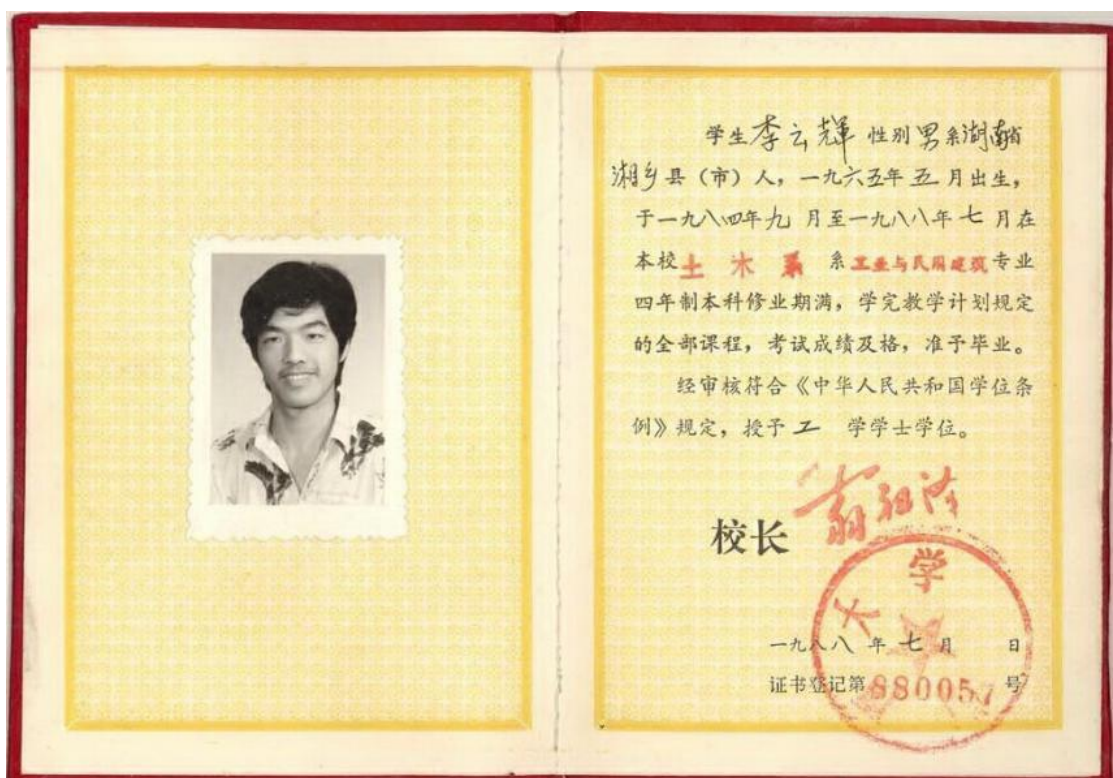 学生李云辉 性别男系湖南省
湘乡县（市）人，一九六五年五月出生，
于一九八四年九月至一九八八年七月在
本校土木系 系工业与民用建筑专业
四年制本科修业期满，学完教学计划规定
的全部课程，考试成绩及格，准予毕业。
经审核符合《中华人民共和国学位条
例》规定，授予工 学学士学位。
校长
大学
一九八八年七月 日
证书登记第880057号